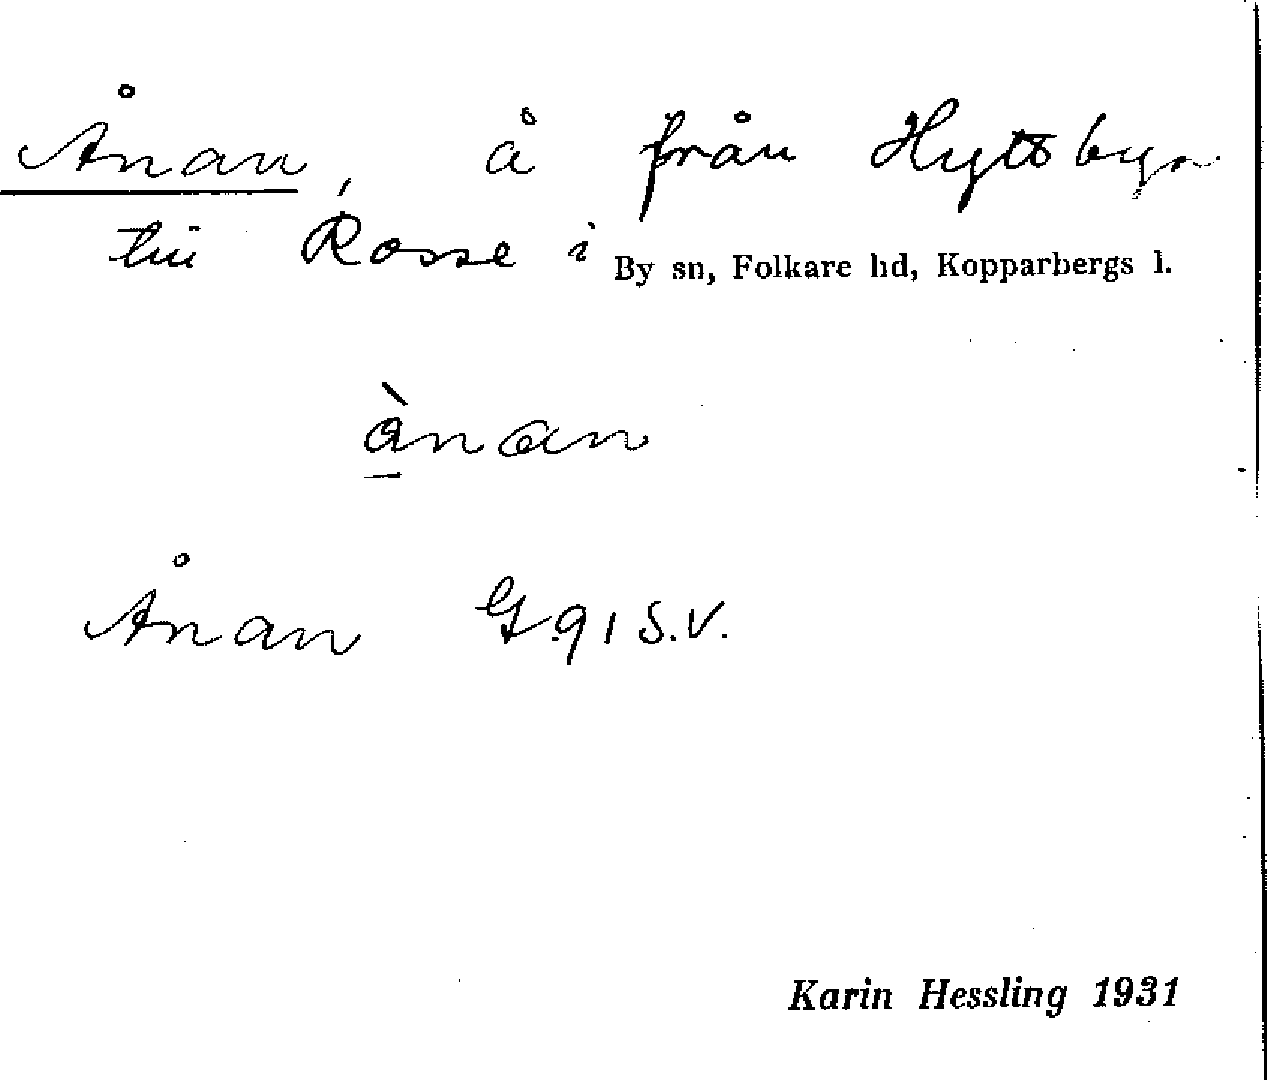 Ånan, å från Hyttbyn
till Rosse i By sn, Folkare hd, Kopparbergs l.
ànan
Ånan G 91 S.V.
Karin Hessling 1931